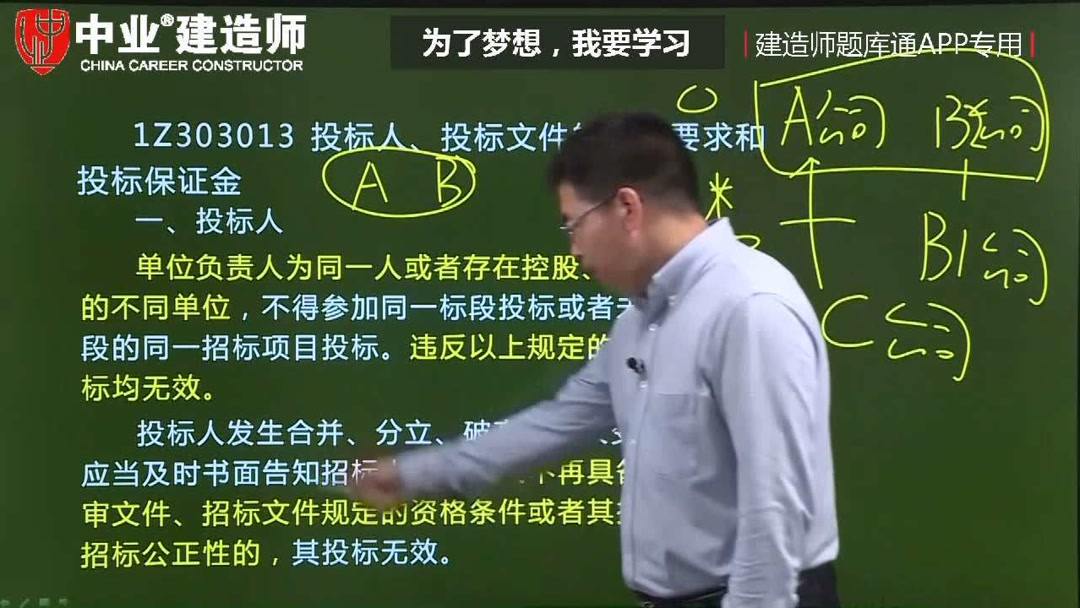 中业®建造师
CHINA CAREER CONSTRUCTOR
为了梦想，我要学习
建造师题库通APP专用
1Z303013 投标人、投标文件 要求和
投标保证金
A B
一、投标人
单位负责人为同一人或者存在控股、
的不同单位，不得参加同一标段投标或者未
段的同一招标项目投标。违反以上规定的
标均无效。
投标人发生合并、分立、破
应当及时书面告知招标 不再具备
审文件、招标文件规定的资格条件或者其
招标公正性的，其投标无效。
A公司 B公司
B1公司
C公司